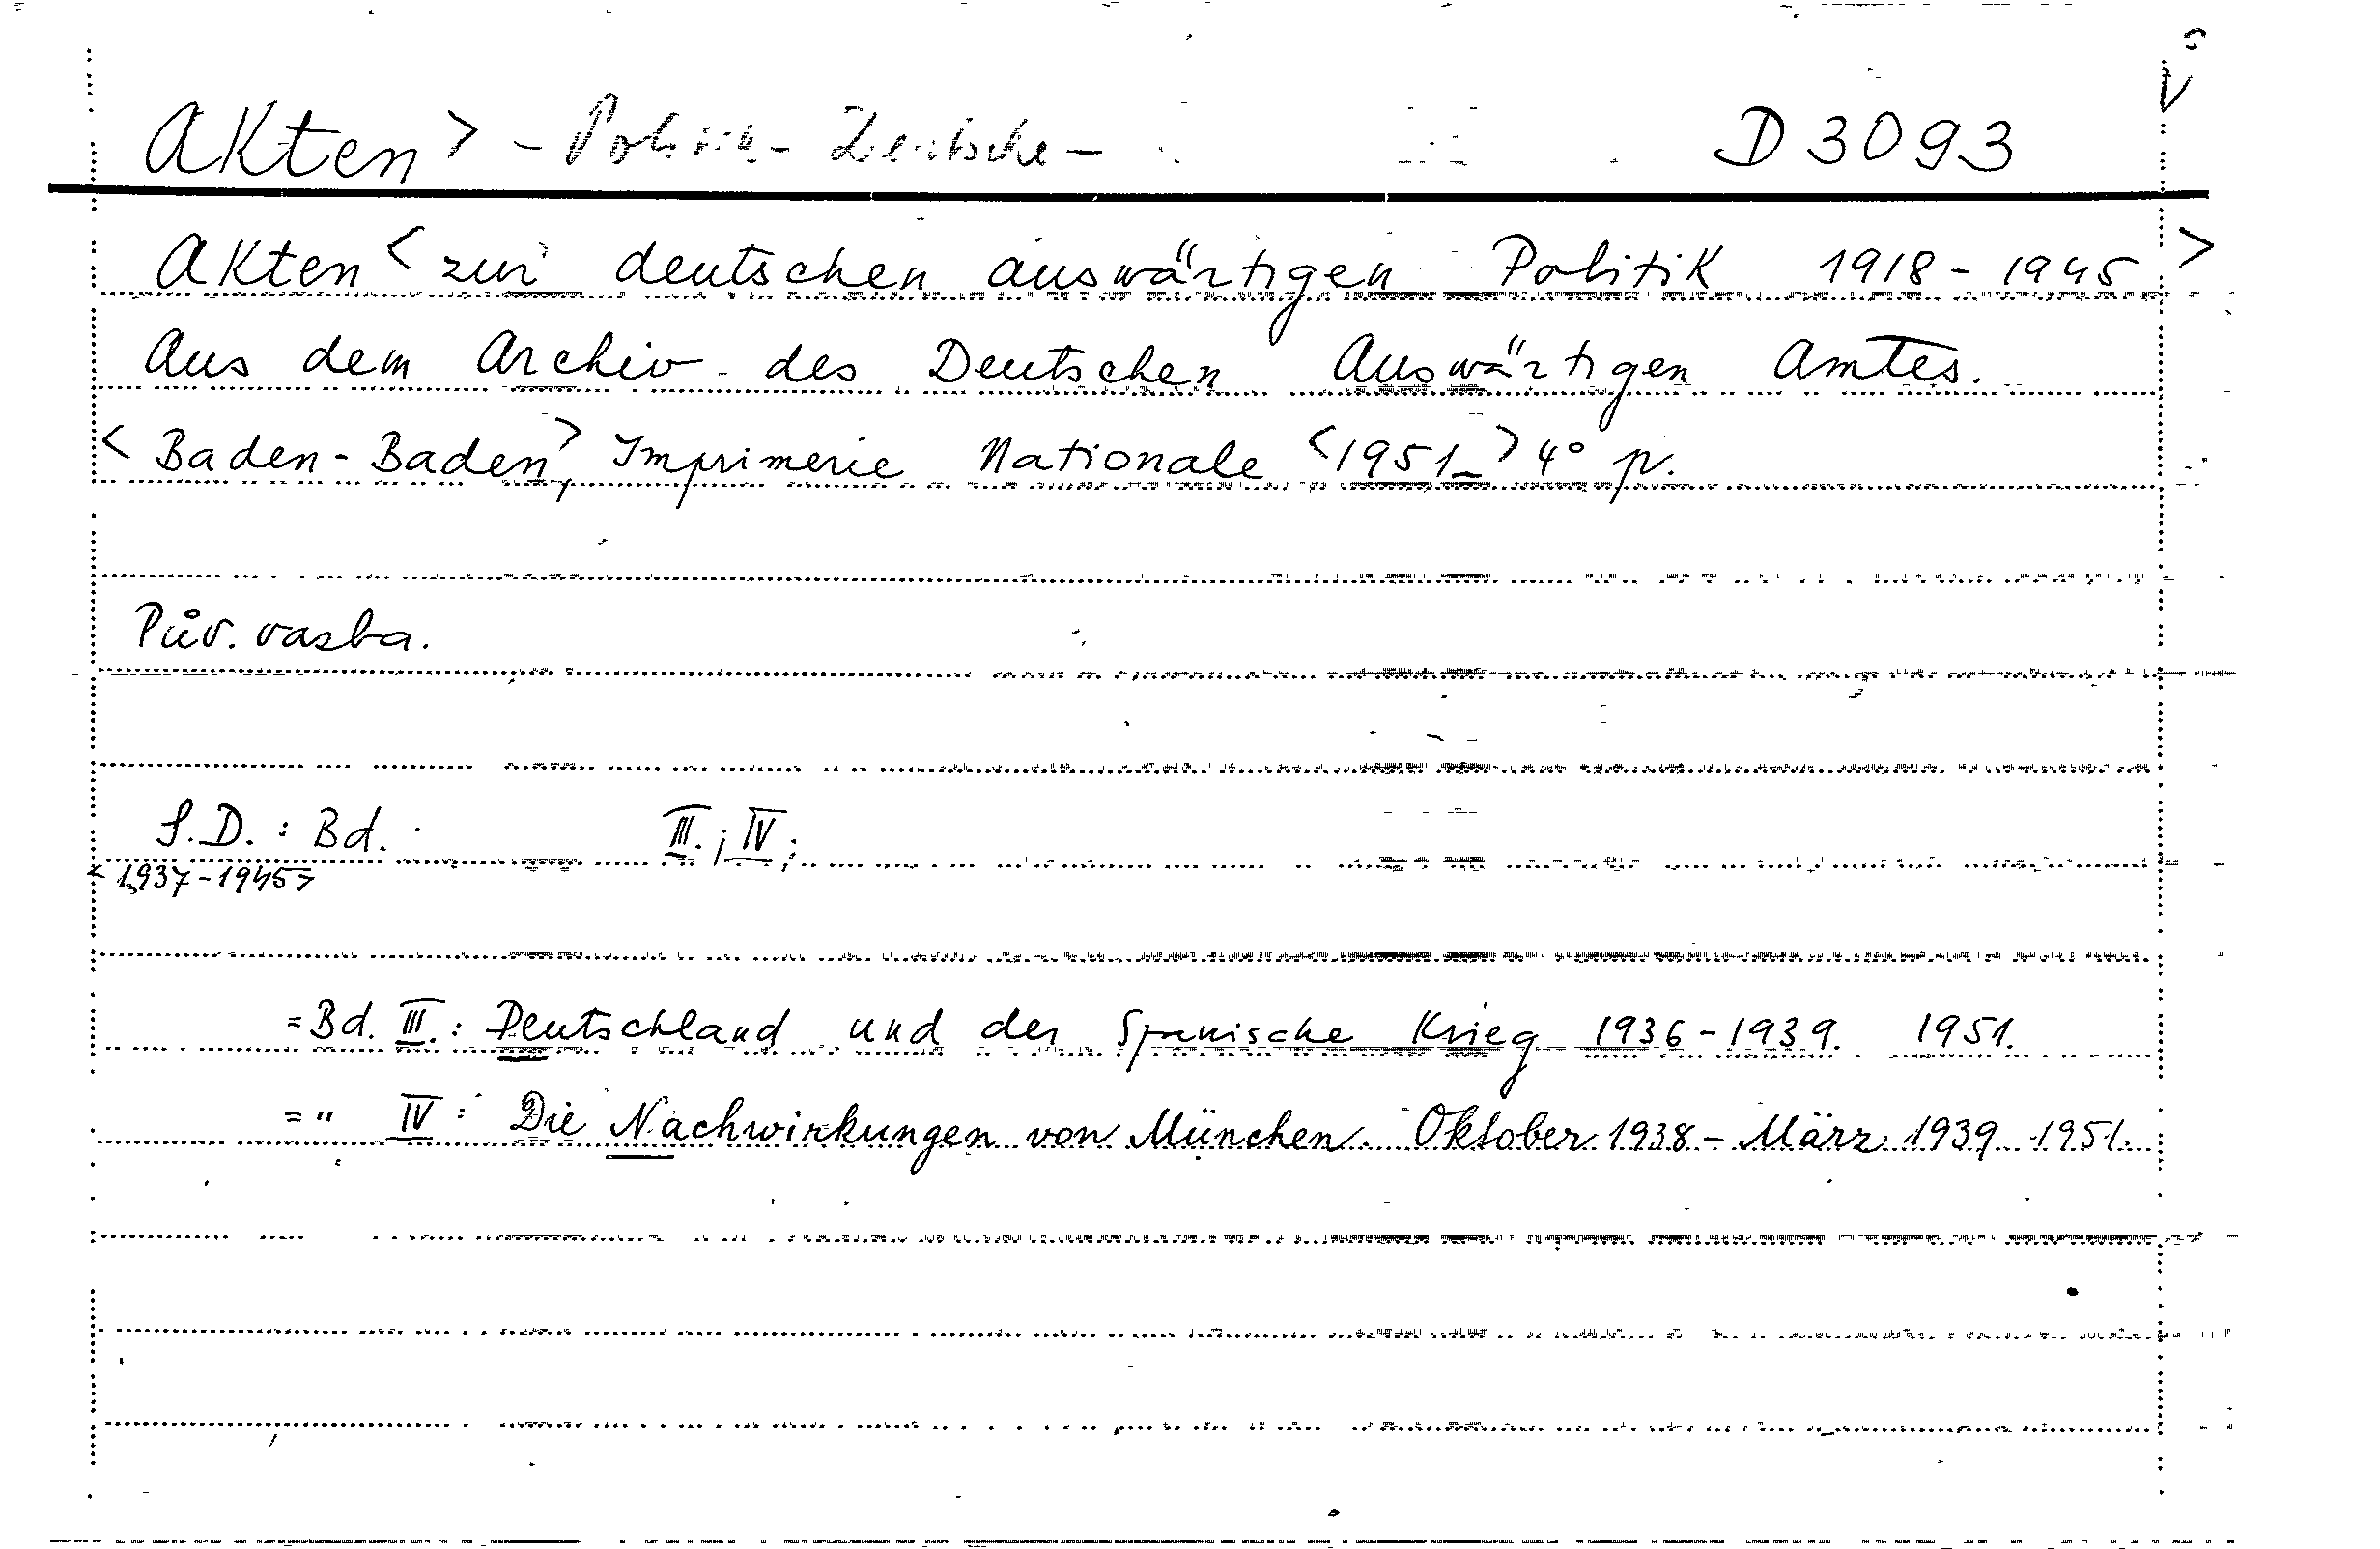 Akten > - Politik - Deutsche - D 3093
Akten < zur deutschen auswärtigen Politik 1918 - 1945 >
Aus dem Archiv des Deutschen Auswärtigen Amtes.
< Baden - Baden >, Imprimerie Nationale < 1951 - > 4° p.
Pův. vazba.
S.D. : Bd. III. ; IV ;
< 1937 - 1945 >
= Bd. III. : Deutschland und der Spanische Krieg 1936 - 1939. 1951.
= " IV : Die Nachwirkungen von München. Oktober 1938 - März 1939 1951.